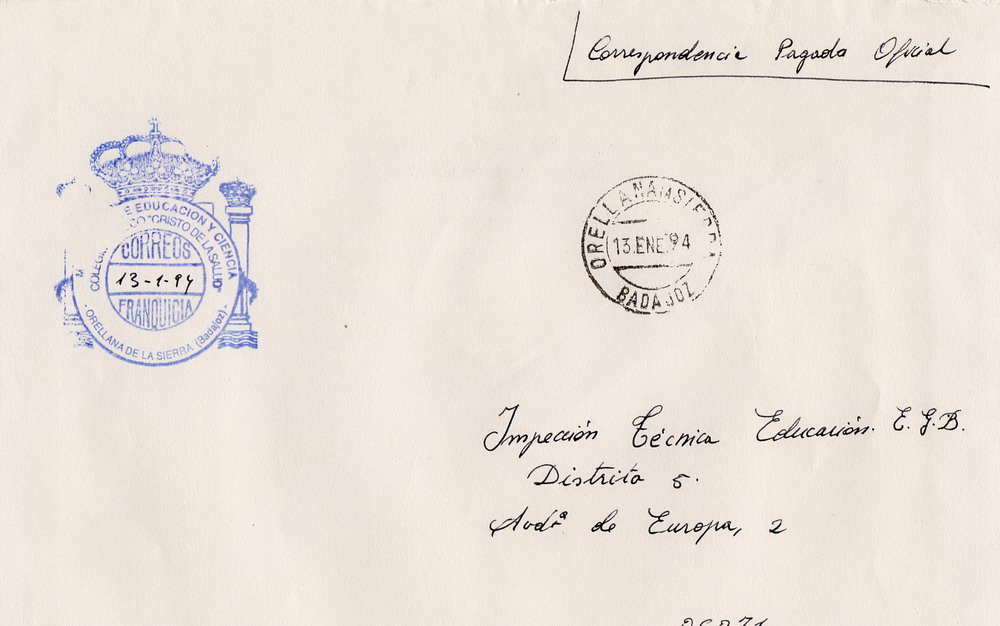 Correspondencia Pagada Oficial
E EDUCACION Y CIENCIA
"CRISTO DE LA SALUD"
CORREOS
13-1-94
FRANQUICIA
ORELLANA DE LA SIERRA (Badajoz)
13.ENE.94
BADAJOZ
Inspección Técnica Educación. E.G.B.
Distrito 5.
Avdª de Europa, 2